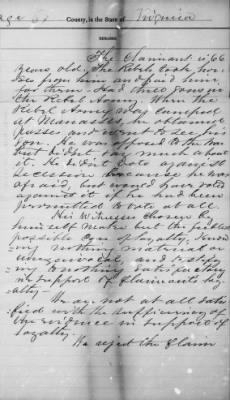 County, in the State of Virginia
REMARKS.
The Claimant is 66
years old. The Rebels took hor
ses from him and paid him
for them. Had three sons in
the Rebel Army. When the
Rebel Army lay camped
at Manassas, he obtained
passes and went to see his
son. He was opposed to the war
but did not say much about
it. He did not vote against
secession because he was
afraid, but would have voted
against it if he had been
permitted to vote at all.
His Witnesses chosen by
himself make but the feeblest
possible of loyalty,
nothing material or
unequivocal, and testify
to nothing satisfactory
in support of Claimants loy
alty—
We are not at all satis
fied with the sufficiency of
the evidence in support of
loyalty.
We reject the Claim